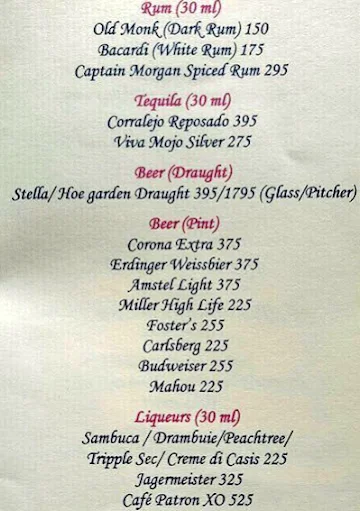 Rum (30 ml)
Old Monk (Dark Rum) 150
Bacardi (White Rum) 175
Captain Morgan Spiced Rum 295
Tequila (30 ml)
Corralejo Reposado 395
Viva Mojo Silver 275
Beer (Draught)
Stella/ Hoe garden Draught 395/1795 (Glass/Pitcher)
Beer (Pint)
Corona Extra 375
Erdinger Weissbier 375
Amstel Light 375
Miller High Life 225
Foster's 255
Carlsberg 225
Budweiser 255
Mahou 225
Liqueurs (30 ml)
Sambuca / Drambuie/Peachtree/
Tripple Sec/ Creme di Casis 225
Jagermeister 325
Café Patron XO 525